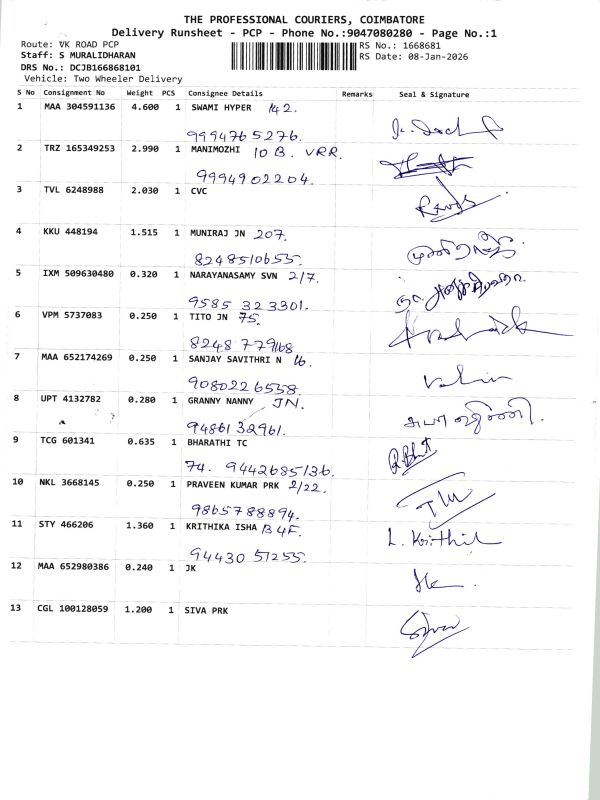 THE PROFESSIONAL COURIERS, COIMBATORE
Delivery Runsheet - PCP - Phone No.:9047080280 - Page No.:1
Route: VK ROAD PCP
RS No.: 1668681
Staff: S MURALIDHARAN
RS Date: 08-Jan-2026
DRS No.: DCJB166868101
Vehicle: Two Wheeler Delivery
S No Consignment No Weight PCS Consignee Details Remarks Seal & Signature
1 MAA 304591136 4.600 1 SWAMI HYPER 142.
9994765276.
2 TRZ 165349253 2.990 1 MANIMOZHI 10 B. VRR.
9994902204.
3 TVL 6248988 2.030 1 CVC
4 KKU 448194 1.515 1 MUNIRAJ JN 207.
8248510655.
5 IXM 509630480 0.320 1 NARAYANASAMY SVN 2/7.
9585 323301.
6 VPM 5737083 0.250 1 TITO JN 75.
8248 779168
7 MAA 652174269 0.250 1 SANJAY SAVITHRI N 16.
9080226558.
8 UPT 4132782 0.280 1 GRANNY NANNY JN.
9486132961.
9 TCG 601341 0.635 1 BHARATHI TC
74. 9442685136.
10 NKL 3668145 0.250 1 PRAVEEN KUMAR PRK 2/22.
9865788894.
11 STY 466206 1.360 1 KRITHIKA ISHA B4F. L. Krithik
94430 51255.
12 MAA 652980386 0.240 1 JK
13 CGL 100128059 1.200 1 SIVA PRK